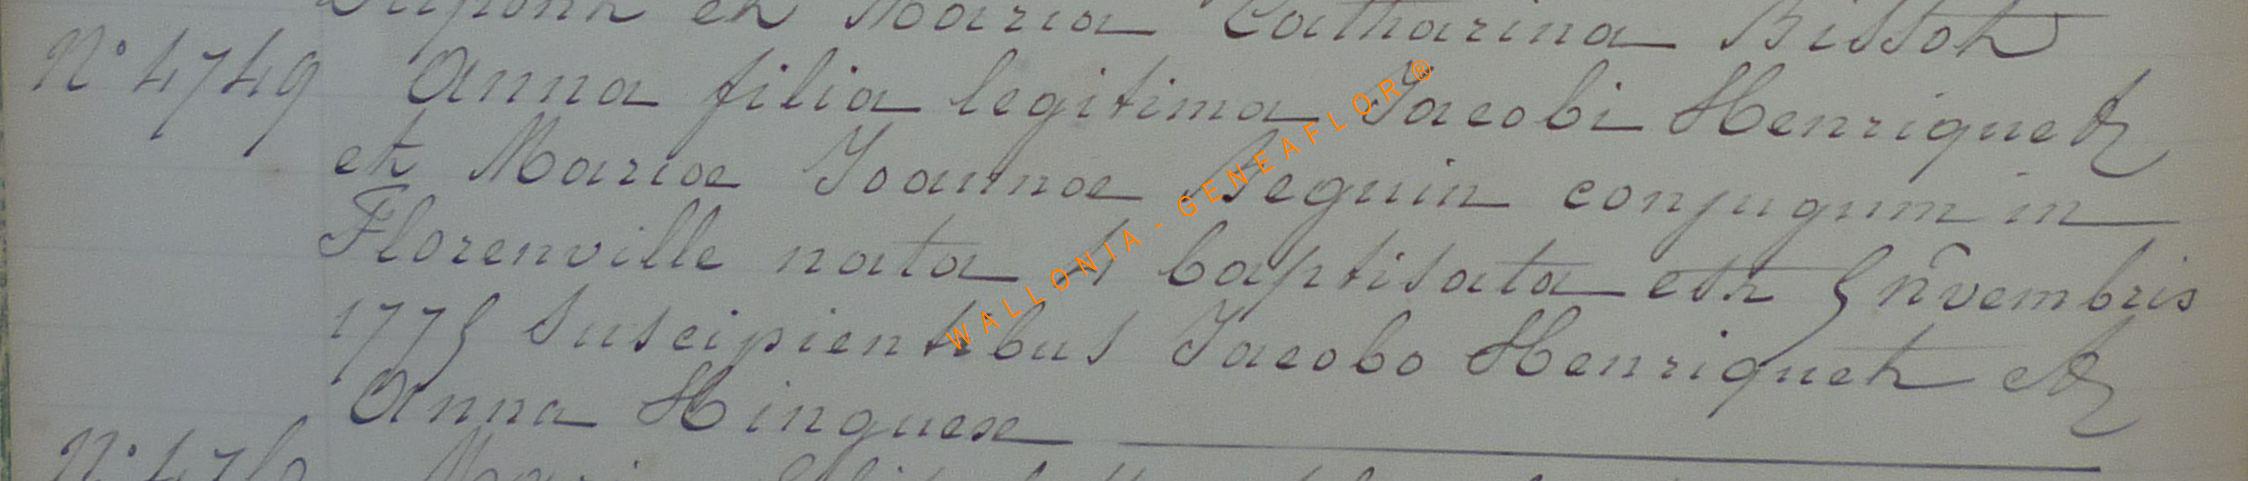 Dupont et Maria Catharina Bissot
N° 4749 Anna filia legitima Jacobi Henriquet
et Mariae Joannae Beguin conjugum in
Florenville nata et baptisata est 5 novembris
1775 Suscipientibus Jacobo Henriquet et
Anna Hinguese
WALLONIA - GENEAFLOR®